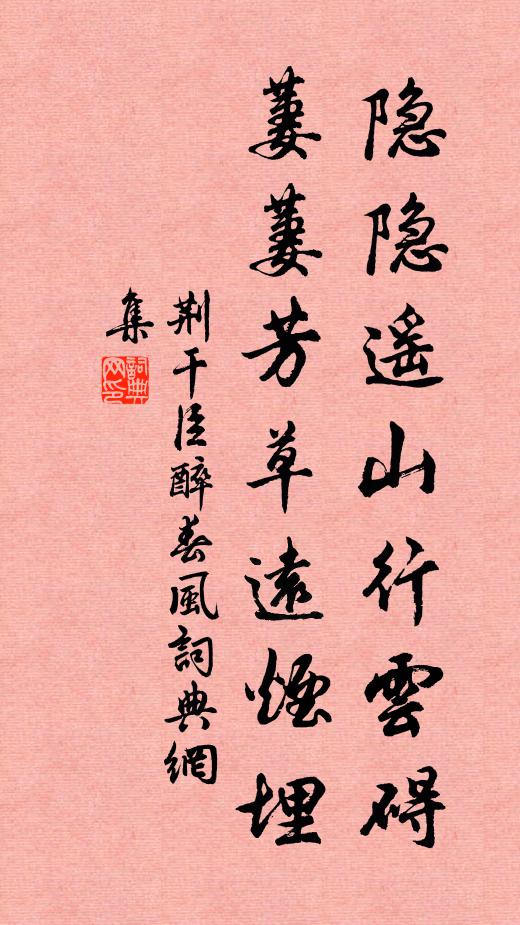 隐隐遥山行雲碍
萋萋芳草遠煙埋
荆干臣醉春風詞典網
集
詞典网印